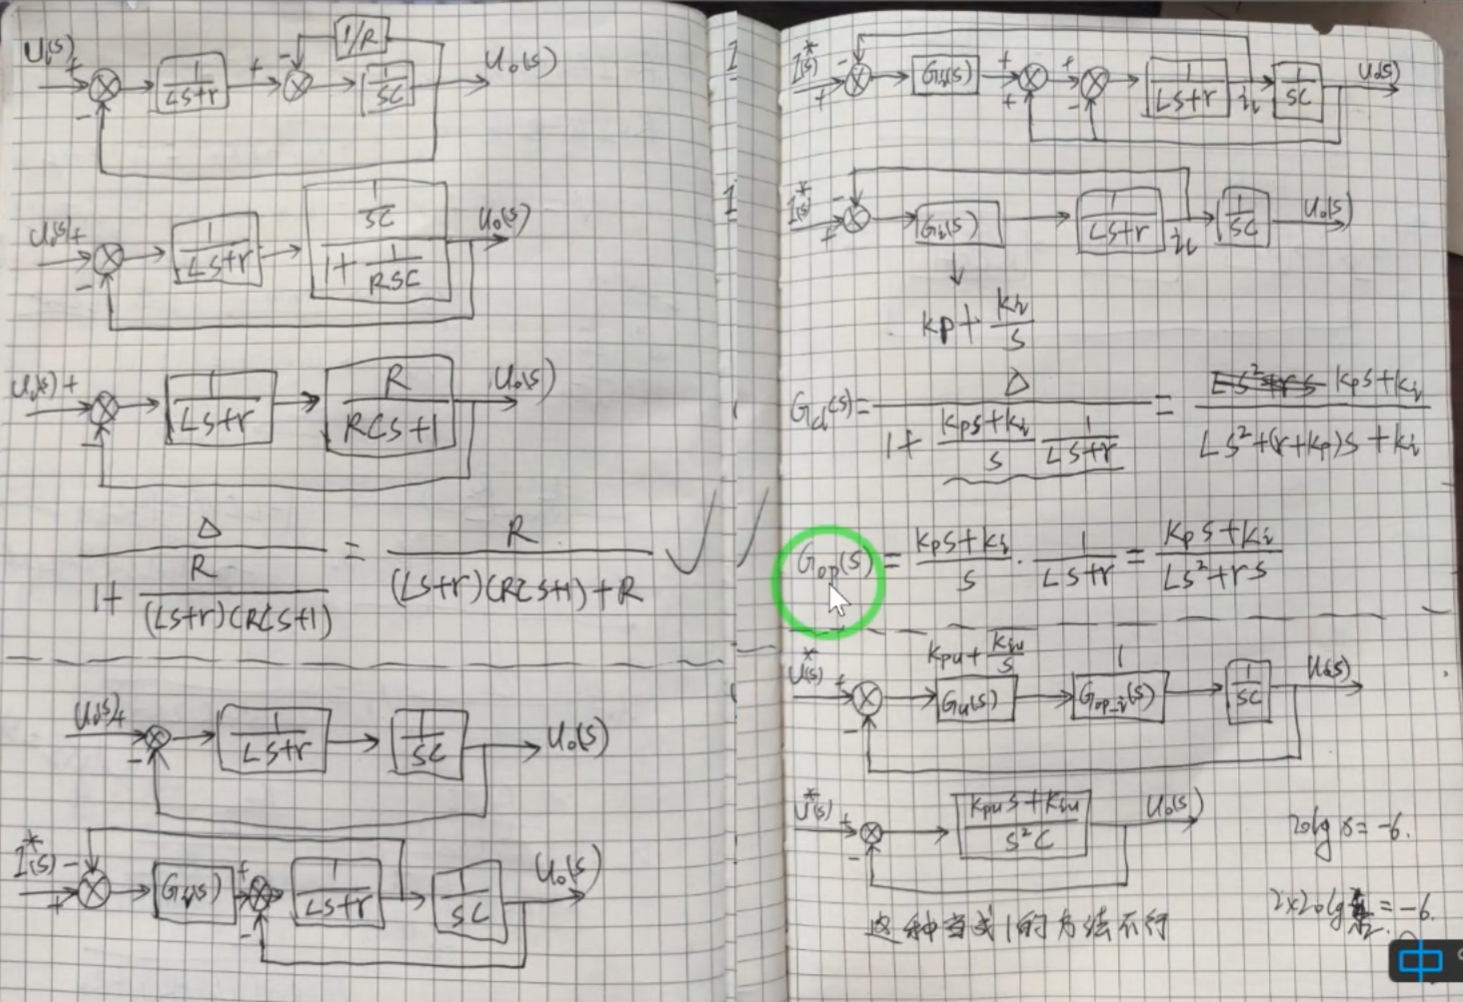 1/R
Uᵢ(s) + - 1/(Ls+r) + - 1/(SC) U₀(s)
U₀(s) + - 1/(Ls+r) (1/(SC))/(1+1/(RSC)) U₀(s)
+ - 1/(Ls+r) R/(RCS+1) U₀(s)
Δ/(1+R/((Ls+r)(RCS+1))) = R/((Ls+r)(RCS+1)+R) ✓
+ - 1/(Ls+r) 1/(SC) U₀(s)
I*(s) - + Gᵢ(s) + - 1/(Ls+r) 1/(SC) U₀(s)
I*(s) - + Gᵢ(s) + + + - 1/(Ls+r) iL 1/(SC) U₀(s)
I*(s) - + Gᵢ(s) 1/(Ls+r) iL 1/(SC) U₀(s)
kp+kᵢ/s
Gcl(s)= Δ/(1+(kps+kᵢ)/s 1/(Ls+r)) = (kps+kᵢ)/(Ls²+(r+kp)s+kᵢ)
Gop(s)= (kps+kᵢ)/s · 1/(Ls+r) = (kps+kᵢ)/(Ls²+rs)
kpu+kiu/s 1
U*(s) + - Gu(s) Gop_i(s) 1/(SC) U₀(s)
U*(s) + - (kpu s+kiu)/(s²C) U₀(s)
20lg x=-6.
2×20lg =-6.
这种当成1的方法不行
中